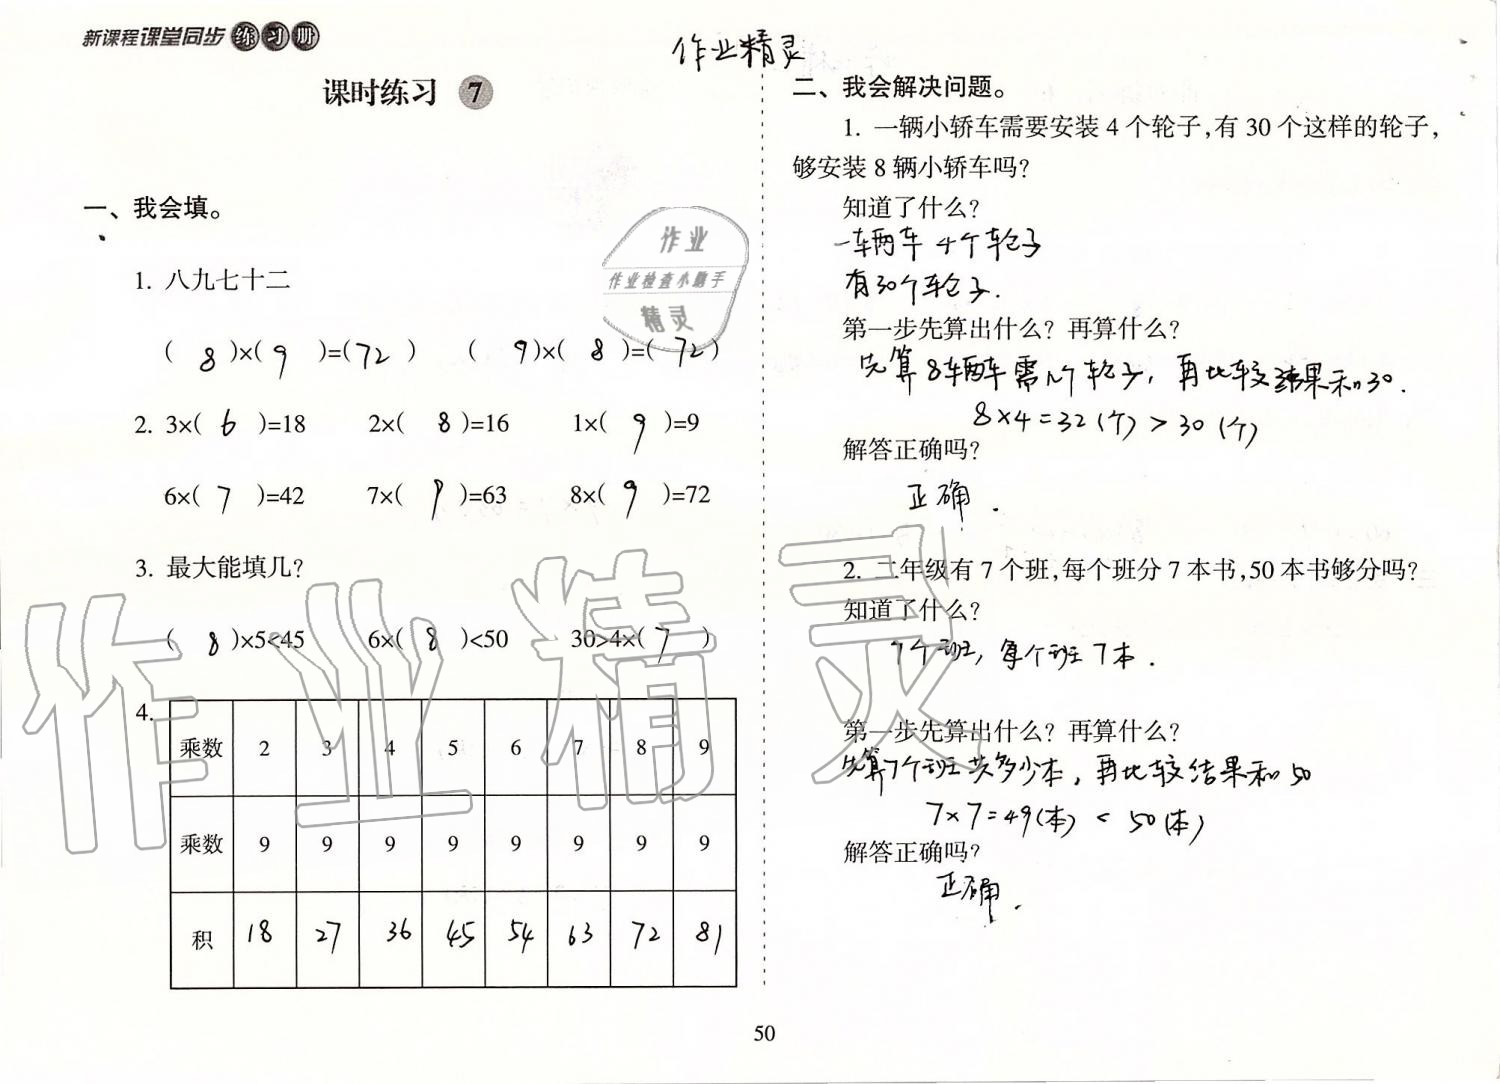 新课程课堂同步练习册
作业精灵
课时练习 7
一、我会填。
1. 八九七十二
( 8 )×( 9 )=(72 ) ( 9)×( 8 )=( 72)
2. 3×( 6 )=18 2×( 8 )=16 1×( 9 )=9
6×( 7 )=42 7×( 9 )=63 8×( 9 )=72
3. 最大能填几?
( 8 )×5<45 6×( 8 )<50 30>4×( 7 )
4.
乘数 2 3 4 5 6 7 8 9
乘数 9 9 9 9 9 9 9 9
积 18 27 36 45 54 63 72 81
作业
作业检查小助手
精灵
作业精灵
二、我会解决问题。
1. 一辆小轿车需要安装 4 个轮子,有 30 个这样的轮子,
够安装 8 辆小轿车吗?
知道了什么?
一车辆车 4个轮子
有30个轮子.
第一步先算出什么? 再算什么?
先算8车辆车需几个轮子, 再比较结果和30.
8×4=32(个)>30(个)
解答正确吗?
正确.
2. 二年级有 7 个班,每个班分 7 本书,50 本书够分吗?
知道了什么?
7个班, 每个班7本.
第一步先算出什么? 再算什么?
先算7个班共多少本, 再比较结果和50
7×7=49(本) < 50(本)
解答正确吗?
正确.
50